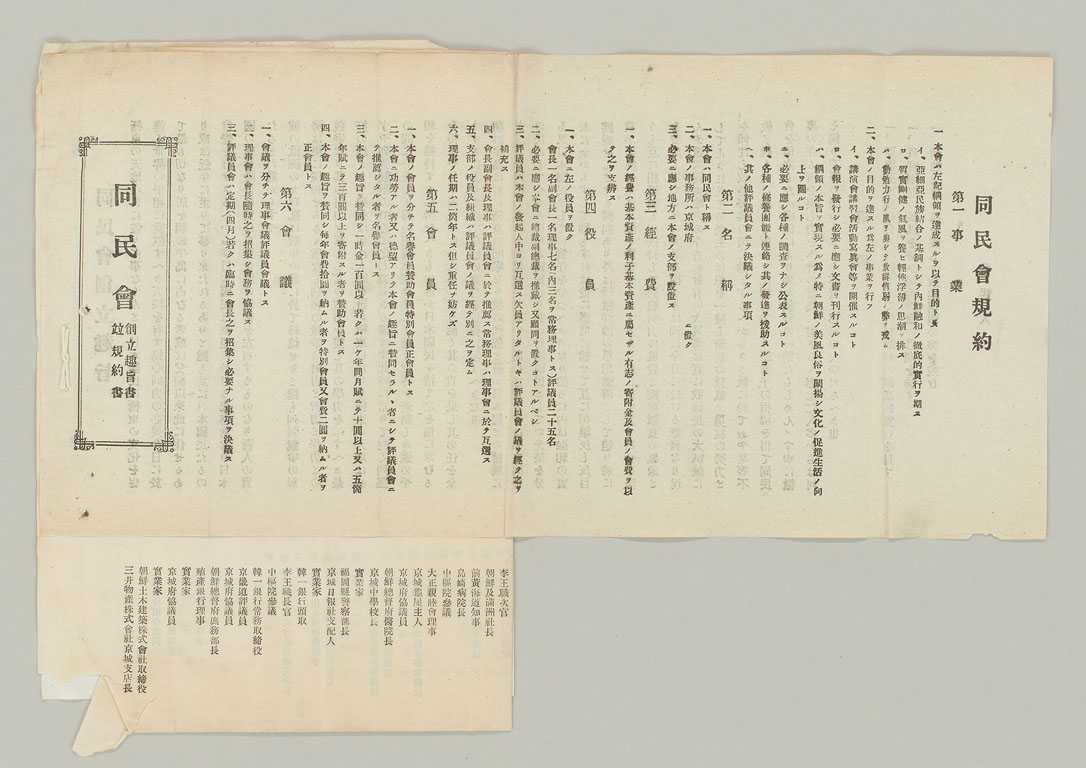 同民會規約
第一 事業
一 本會ハ左記綱領ヲ達成スルヲ以テ目的トス
イ、亞細亞民族結合ノ基調トシテ內鮮融和ノ徹底的實行ヲ期ス
ロ、質實剛健ノ氣風ヲ養ヒ輕佻浮薄ノ思潮ヲ排ス
ハ、勤勉力行ノ風ヲ興シテ放縱惰弱ノ弊ヲ戒ム
二、本會ノ目的ヲ達スル爲左ノ事業ヲ行フ
イ、講演會講習會活動寫眞會等ヲ開催スルコト
ロ、會報ヲ發行シ必要ニ應シ文書ヲ刊行スルコト
ハ、綱領ノ本旨ヲ實現スル爲メ特ニ朝鮮ノ美風良俗ヲ闡揚シ文化ノ促進生活ノ向
上ヲ圖ルコト
ニ、必要ニ應シ各種ノ調査ヲナシ公表スルコト
ホ、各種ノ修養團體ト連絡シ其ノ發達ヲ援助スルコト
ヘ、其ノ他評議員會ニテ決議シタル事項
第二 名稱
一、本會ハ同民會ト稱ス
二、本會ノ事務所ハ京城府 ニ置ク
三、必要ニ應シ地方ニ本會ノ支部ヲ設置ス
第三 經費
一、本會ノ經費ハ基本資產ノ利子基本資產ニ屬セザル有志ノ寄附金及會員ノ會費ヲ以
テ之ヲ支辨ス
第四 役員
一、本會ニ左ノ役員ヲ置ク
會長一名副會長一名理事七名(內三名ヲ常務理事トス)評議員二十五名
二、必要ニ應シ本會ニ總裁副總裁ヲ推戴シ又顧問ヲ置クコトアルベシ
三、評議員ハ本會ノ發起人中ヨリ互選ス欠員アリタルトキハ評議員會ノ議ヲ經テ之ヲ
補充ス
四、會長副會長及理事ハ評議員會ニ於テ推薦ス常務理事ハ理事會ニ於テ互選ス
五、支部ノ役員及組織ハ評議員會ノ議ヲ經テ別ニ之ヲ定ム
六、理事ノ任期ハ二箇年トス但シ重任ヲ妨ケズ
第五 會員
一、本會ノ會員ヲ分チテ名譽會員贊助會員特別會員正會員トス
二、本會ニ功勞アル者又ハ德望アリテ本會ノ趣旨ニ贊同セラルヽ者ニシテ評議員會ニ
テ推薦シタル者ヲ名譽會員トス
三、本會ノ趣旨ヲ贊同シ一時金一百圓以上若クハ一ケ年間月賦ニテ十圓以上又ハ五箇
年賦ニテ三百圓以上ヲ寄附スル者ヲ贊助會員トス
四、本會ノ趣旨ヲ贊同シ每年會費拾圓ヲ納ムル者ヲ特別會員又會費二圓ヲ納ムル者ヲ
正會員トス
第六 會議
一、會議ヲ分チテ理事會議評議員會議トス
二、理事會ハ會長隨時之ヲ招集シ會務ヲ協議ス
三、評議員會ハ定期(四月)若クハ臨時ニ會長之ヲ招集シ必要ナル事項ヲ決議ス
同民會
創立趣旨書
竝規約書
李王職次官
朝鮮及滿洲社長
前黃海道知事
島崎病院長
中樞院參議
大正親睦會理事
京城龜屋主人
京城府協議員
朝鮮總督府醫院長
京城中學校長
實業家
福岡縣警察部長
京城日報社支配人
實業家
韓一銀行頭取
李王職長官
中樞院參議
韓一銀行常務取締役
京畿道評議員
京城府協議員
朝鮮總督府庶務部長
殖產銀行理事
實業家
京城府協議員
實業家
朝鮮土木建築株式會社取締役
三井物產株式會社京城支店長